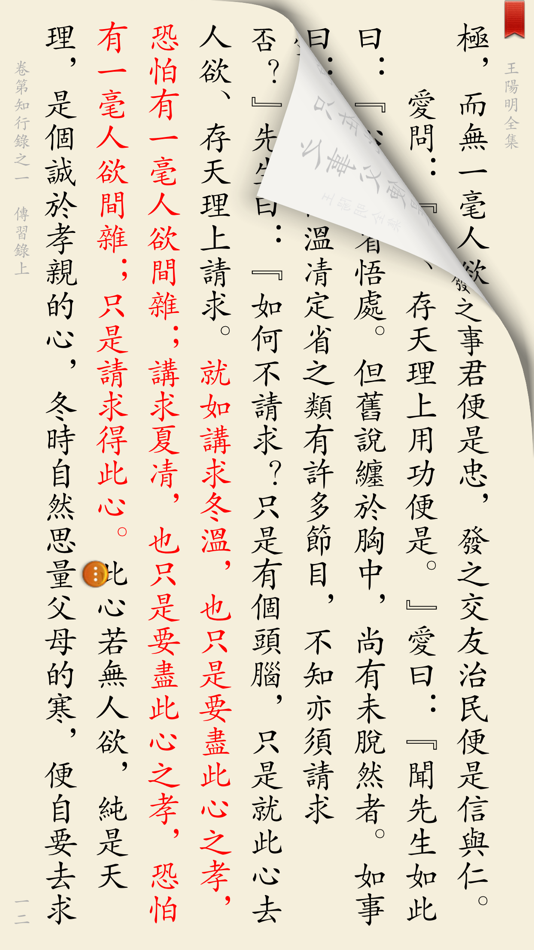 王陽明全集
極，而無一毫人欲
發之事君便是忠，發之交友治民便是信與仁。
愛問：『
、存天理上用功便是。』愛曰：『聞先生如此
曰：『
省悟處。但舊說纏於胸中，尚有未脫然者。如事
曰：
溫凊定省之類有許多節目，不知亦須請求
否？』先生曰：『如何不請求？只是有個頭腦，只是就此心去
人欲、存天理上請求。就如講求冬溫，也只是要盡此心之孝，
恐怕有一毫人欲間雜；講求夏凊，也只是要盡此心之孝，恐怕
有一毫人欲間雜；只是請求得此心。此心若無人欲，純是天
理，是個誠於孝親的心，冬時自然思量父母的寒，便自要去求
卷第知行錄之一 傳習錄上
一二